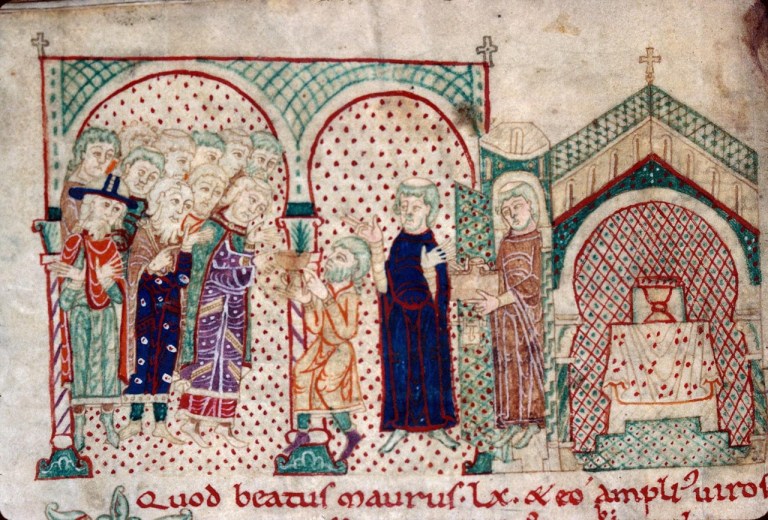 Quod beatus maurus·lx·& eo ampli⁹ uiros